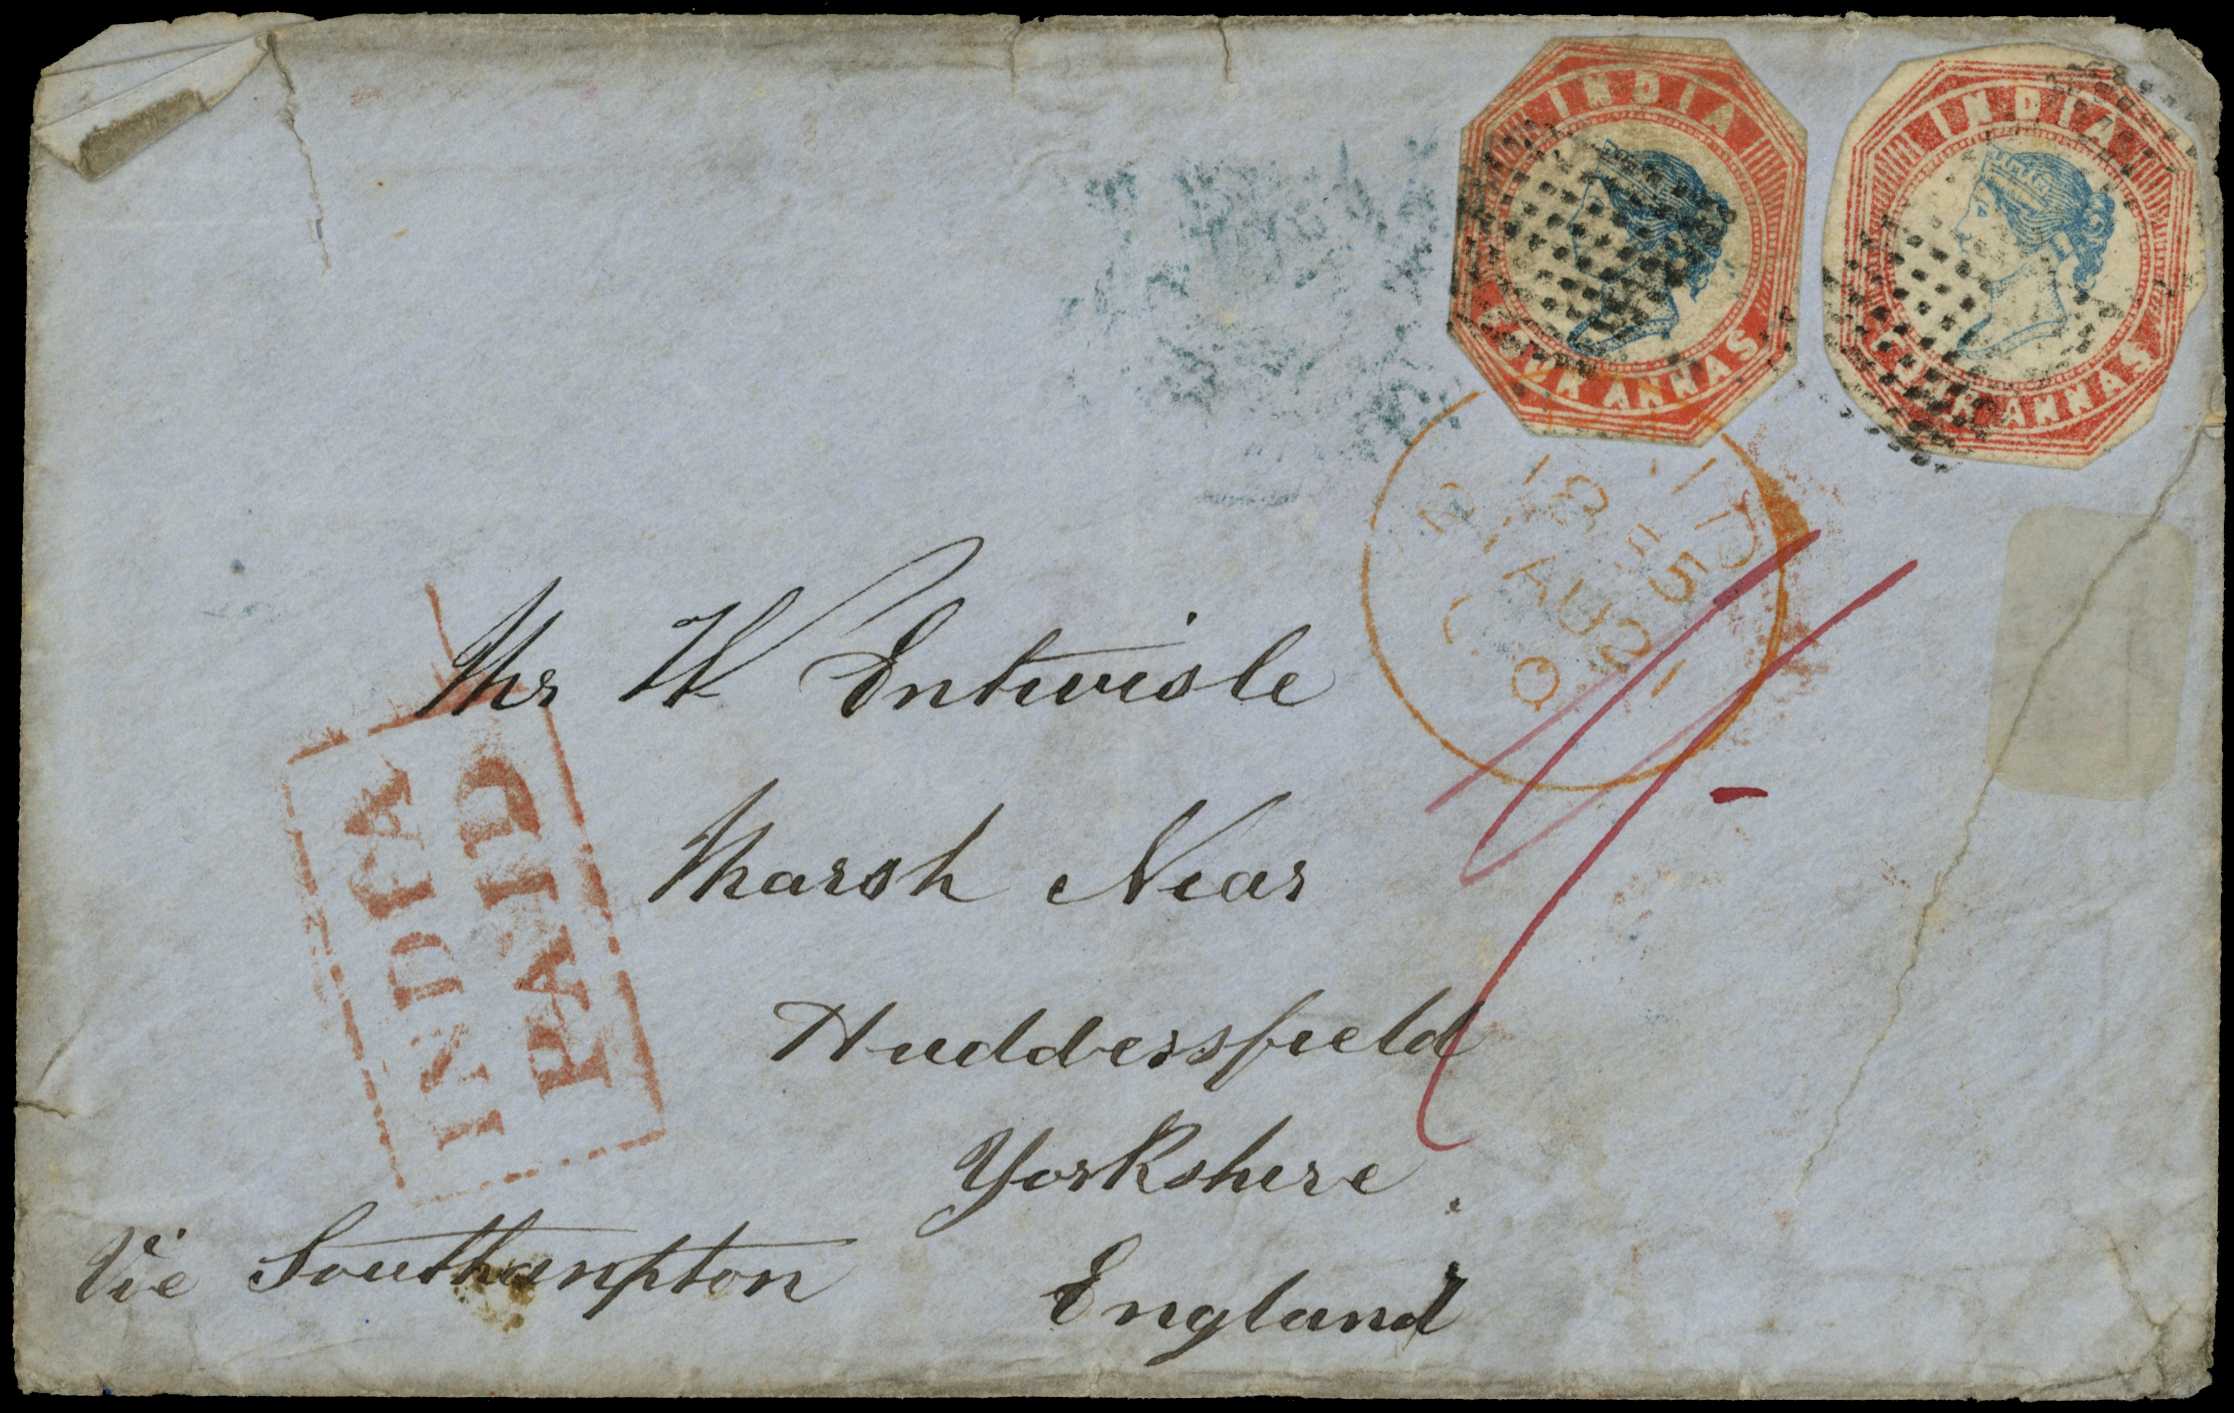 INDIA
FOUR ANNAS
INDIA
FOUR ANNAS
PAID
18
AU 21
INDIA
PAID
Mr W Entwisle
Marsh Near
Huddersfield
Yorkshire
England
Via Southampton